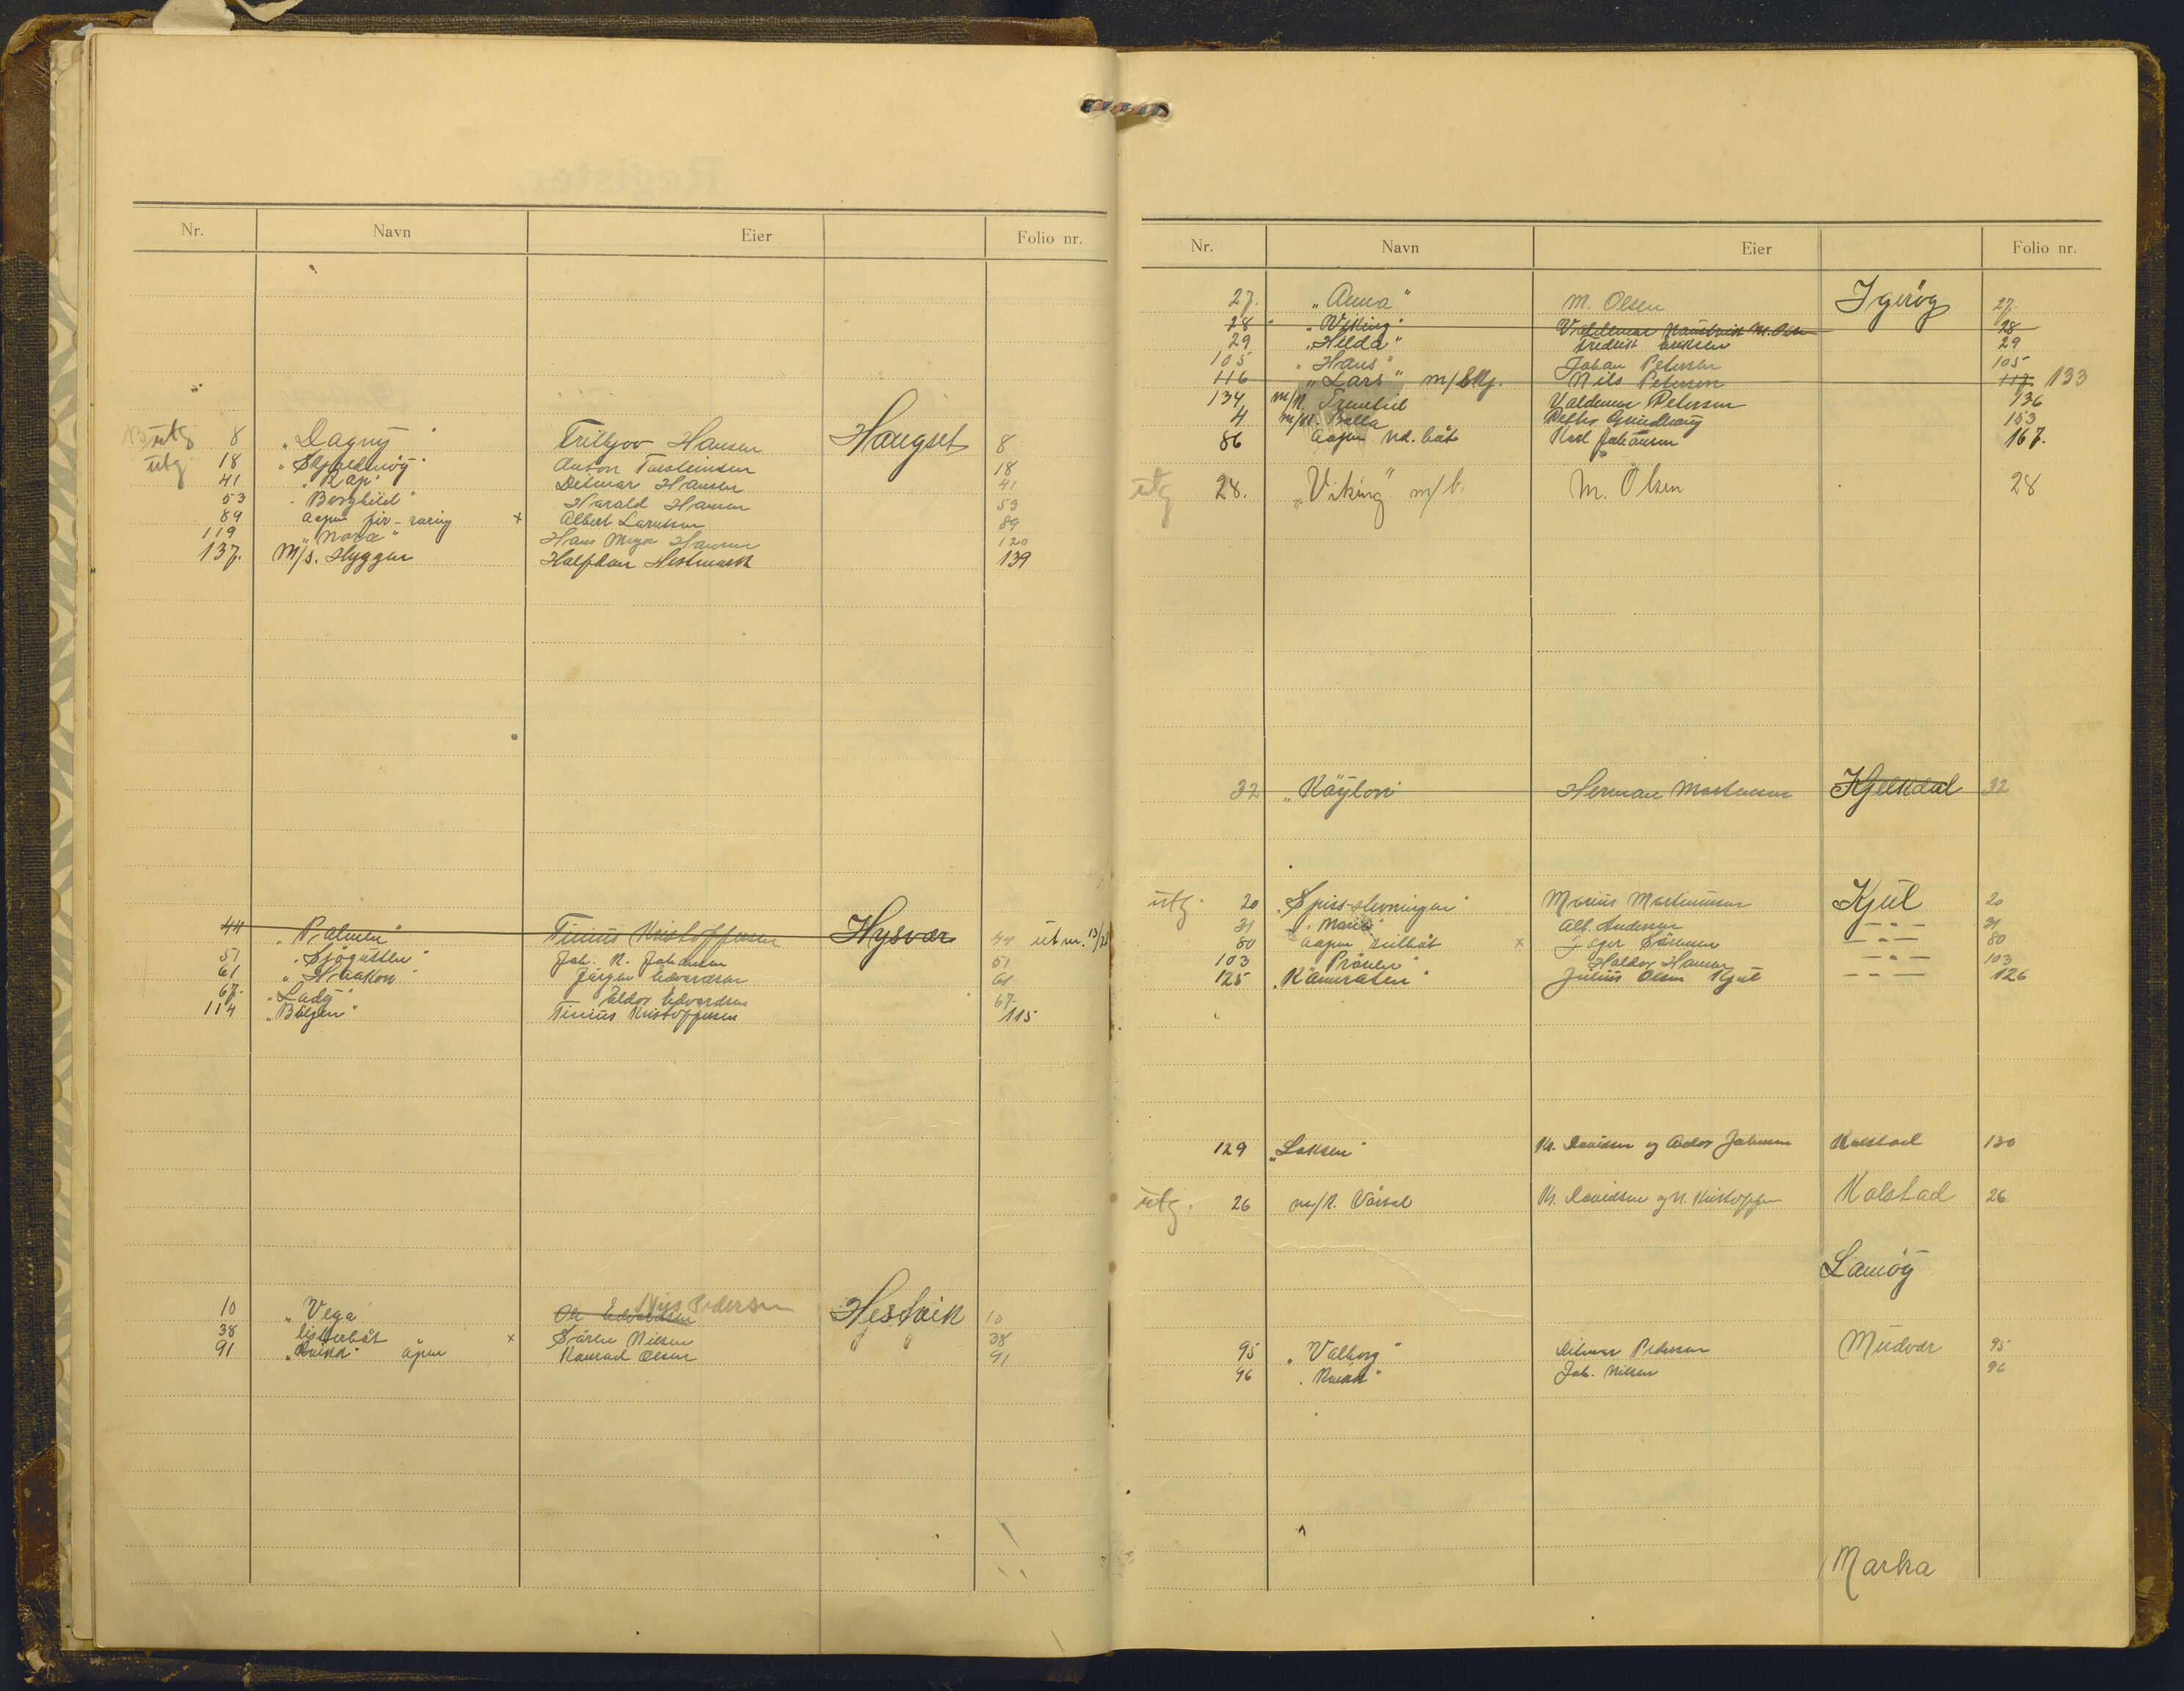 Nr. Navn Eier Folio nr.
utg 8 „Dagny" Hansen Haugset 8
utg 18 „Skjoldmøy" Anton Torsteinsen 18
41 „Rap" Detmar Hansen 41
53 „Borghild" Harald Hansen 53
89 aapen fir-roring x Albert Larntsen 89
119 „Nora" Hans Meyer Hansen 120
137. M/s. Hyggen Halfdan Nestmark 139
44 „Palmen" Tinius Kristoffersen Hysvær 44 utm. 13/
51 „Sjøgutten" Joh. N. Johansen 51
61 „Haakon" Jørgen Edvardsen 61
67. „Lady" Eldor Edvardsen 67.
114 „Bølgen" Tinius Kristoffersen 115
10 „Vega" Ole Edvardsen Nils Pedersen Hestvik 10
38 listerbåt x Søren Nilsen " " 38
91 „Kvikk" åpen Konrad Olsen 91
Nr. Navn Eier Folio nr.
27. „Anna" M. Olsen Igerøy 27.
28 „Viking" Valdemar M. Olsen 28
29 „Hilda" Fredrik Eriksen 29
105 „Hans" Johan Petersen 105
116 „Lars" m/skj. Nils Petersen 117. 133
134 m/k. Fremtid Valdemar Petersen 136
4 m/k. Bella Detlev Grindhaug 153
86 aapen nd. båt Karl Johansen 167.
utg 28. „Viking" m/k. M. Olsen 28
32 „Køylon" Herman Mortensen Kjelkdal 32
utg. 20 „Spiss-stevningen" Marius Martinussen Kjul 20
31 „Maria" Alb. Andersen — " — 31
80 aapen seilbåt x Jeger Sørensen — " — 80
103 „Prøven" Haldor Hansen — " — 103
125 „Kameraten" Julius Olsen Kjul — " — 126
129 „Laksen" Kr. Davidsen og Johnsen Kalstad 130
utg. 26 m/k. Vårsol Kr. Davidsen og N. Kristoffersen Kalstad 26
Lamøy
95 „Valborg" Detmar Pedersen Mudvær 95
96 „Kvikk" Joh. Nilsen 96
Marka